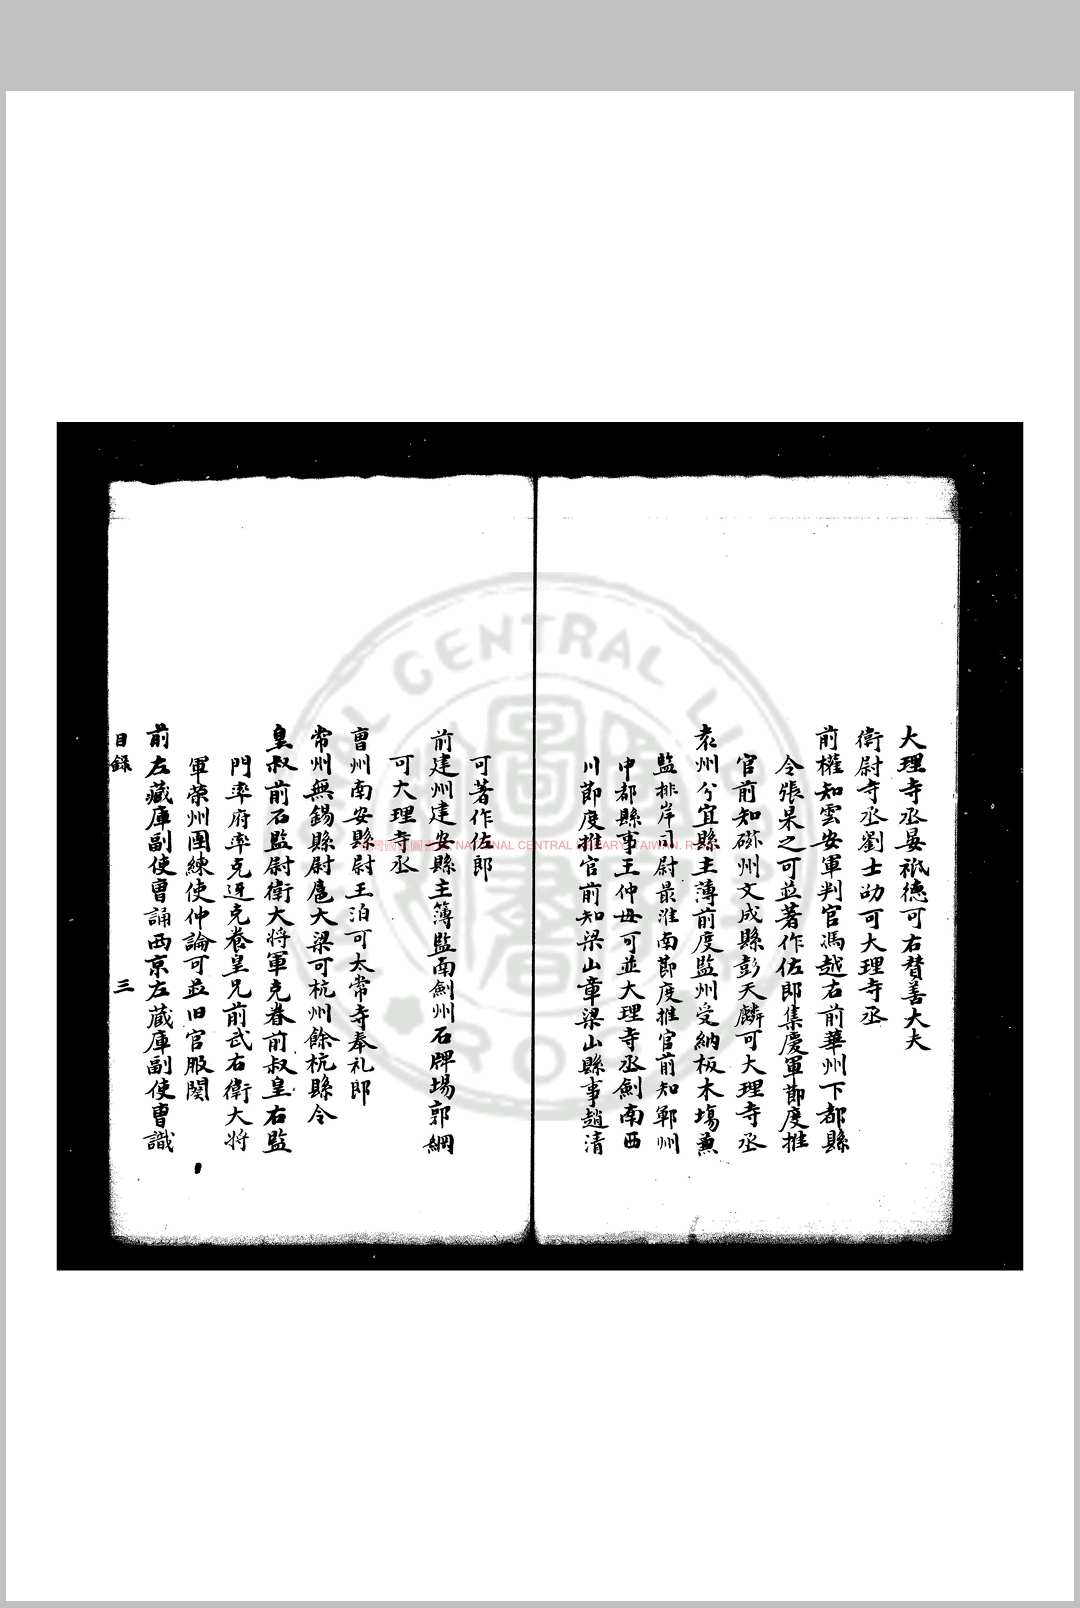 大理寺丞晏祇德可右賛善大夫
衛尉寺丞劉士劭可大理寺丞
前權知雲安軍判官馮越右前華州下都縣
令張杲之可並著作佐郎集慶軍節度推
官前知磁州文成縣彭天麟可大理寺丞
袁州分宜縣主薄前度監州受納板木塲兼
監排岸司尉最淮南節度推官前知鄆州
中都縣事王仲毋可並大理寺丞劍南西
川節度推官前知梁山軍梁山縣事趙清
可著作佐郎
前建州建安縣主簿監南劍州石牌場郭綱
可大理寺丞
曺州南安縣尉王泊可太常寺奉礼郎
常州無錫縣尉扈大梁可杭州餘杭縣令
皇叔前石監尉衛大将軍克眷前叔皇右監
門率府率克迓克眷皇兄前武右衛大将
軍荣州團練使仲論可並旧官服闋
前左藏庫副使曺誦西京左藏庫副使曺識
目録
三
NATIONAL CENTRAL LIBRARY, TAIWAN, R.O.C.